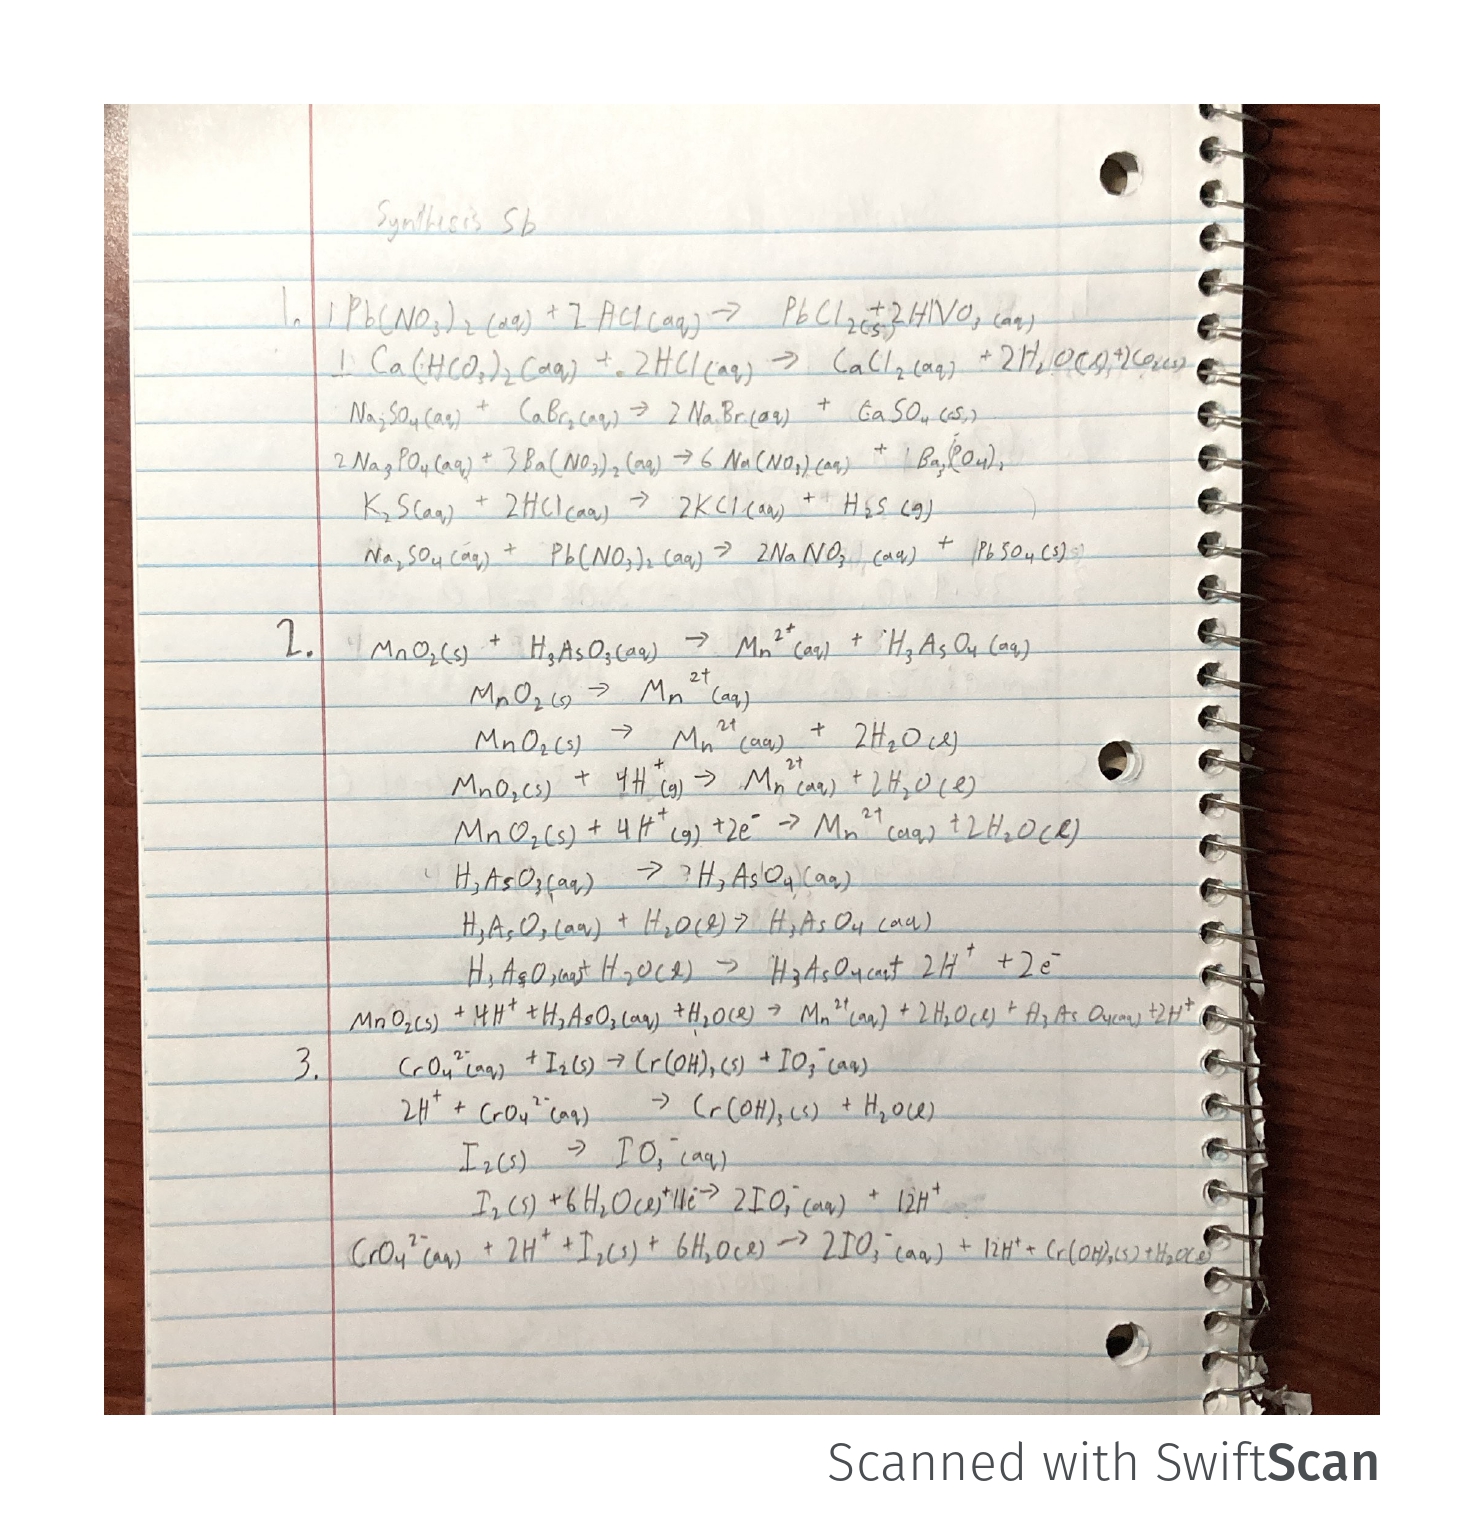 Synthesis Sb
1. 1 Pb(NO₃)₂(aq) + 2 HCl(aq) → PbCl₂(s) + 2HNO₃(aq)
1 Ca(HCO₃)₂(aq) + 2HCl(aq) → CaCl₂(aq) + 2H₂O(s) + 2CO₂(s)
Na₂SO₄(aq) + CaBr₂(aq) → 2NaBr(aq) + CaSO₄(s)
2Na₃PO₄(aq) + 3Ba(NO₃)₂(aq) → 6Na(NO₃)(aq) + 1Ba₃(PO₄)₂
K₂S(aq) + 2HCl(aq) → 2KCl(aq) + H₂S(g)
Na₂SO₄(aq) + Pb(NO₃)₂(aq) → 2NaNO₃(aq) + PbSO₄(s)
2. MnO₂(s) + H₃AsO₃(aq) → Mn²⁺(aq) + H₃AsO₄(aq)
MnO₂(s) → Mn²⁺(aq)
MnO₂(s) → Mn²⁺(aq) + 2H₂O(l)
MnO₂(s) + 4H⁺(g) → Mn²⁺(aq) + 2H₂O(l)
MnO₂(s) + 4H⁺(g) + 2e⁻ → Mn²⁺(aq) + 2H₂O(l)
H₃AsO₃(aq) → H₃AsO₄(aq)
H₃AsO₃(aq) + H₂O(l) → H₃AsO₄(aq)
H₃AsO₃(aq) + H₂O(l) → H₃AsO₄(aq) + 2H⁺ + 2e⁻
MnO₂(s) + 4H⁺ + H₃AsO₃(aq) + H₂O(l) → Mn²⁺(aq) + 2H₂O(l) + H₃AsO₄(aq) + 2H⁺
3. CrO₄²⁻(aq) + I₂(s) → Cr(OH)₃(s) + IO₃⁻(aq)
2H⁺ + CrO₄²⁻(aq) → Cr(OH)₃(s) + H₂O(l)
I₂(s) → IO₃⁻(aq)
I₂(s) + 6H₂O(l) + 11e⁻ → 2IO₃⁻(aq) + 12H⁺
CrO₄²⁻(aq) + 2H⁺ + I₂(s) + 6H₂O(l) → 2IO₃⁻(aq) + 12H⁺ + Cr(OH)₃(s) + H₂O(l)
Scanned with SwiftScan